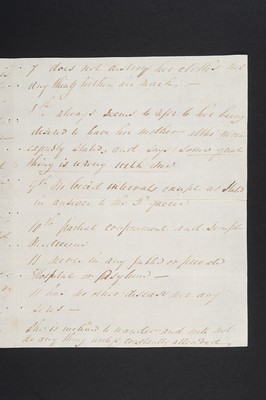 7 does not destroy her clothes nor
any thing within her reach. —
8th always seems to refer to her being
desired to have her mother
stated, and says some great
thing is wrong with her
9th No lucid intervals except as stated
in answer to the 3d
10th partial confinement and simple
Medicine
11 never in any public or private
Hospital or Asylum —
11 has no other disease nor any
sores —
She is inclined to wander and will not
do any thing unless constantly attended.